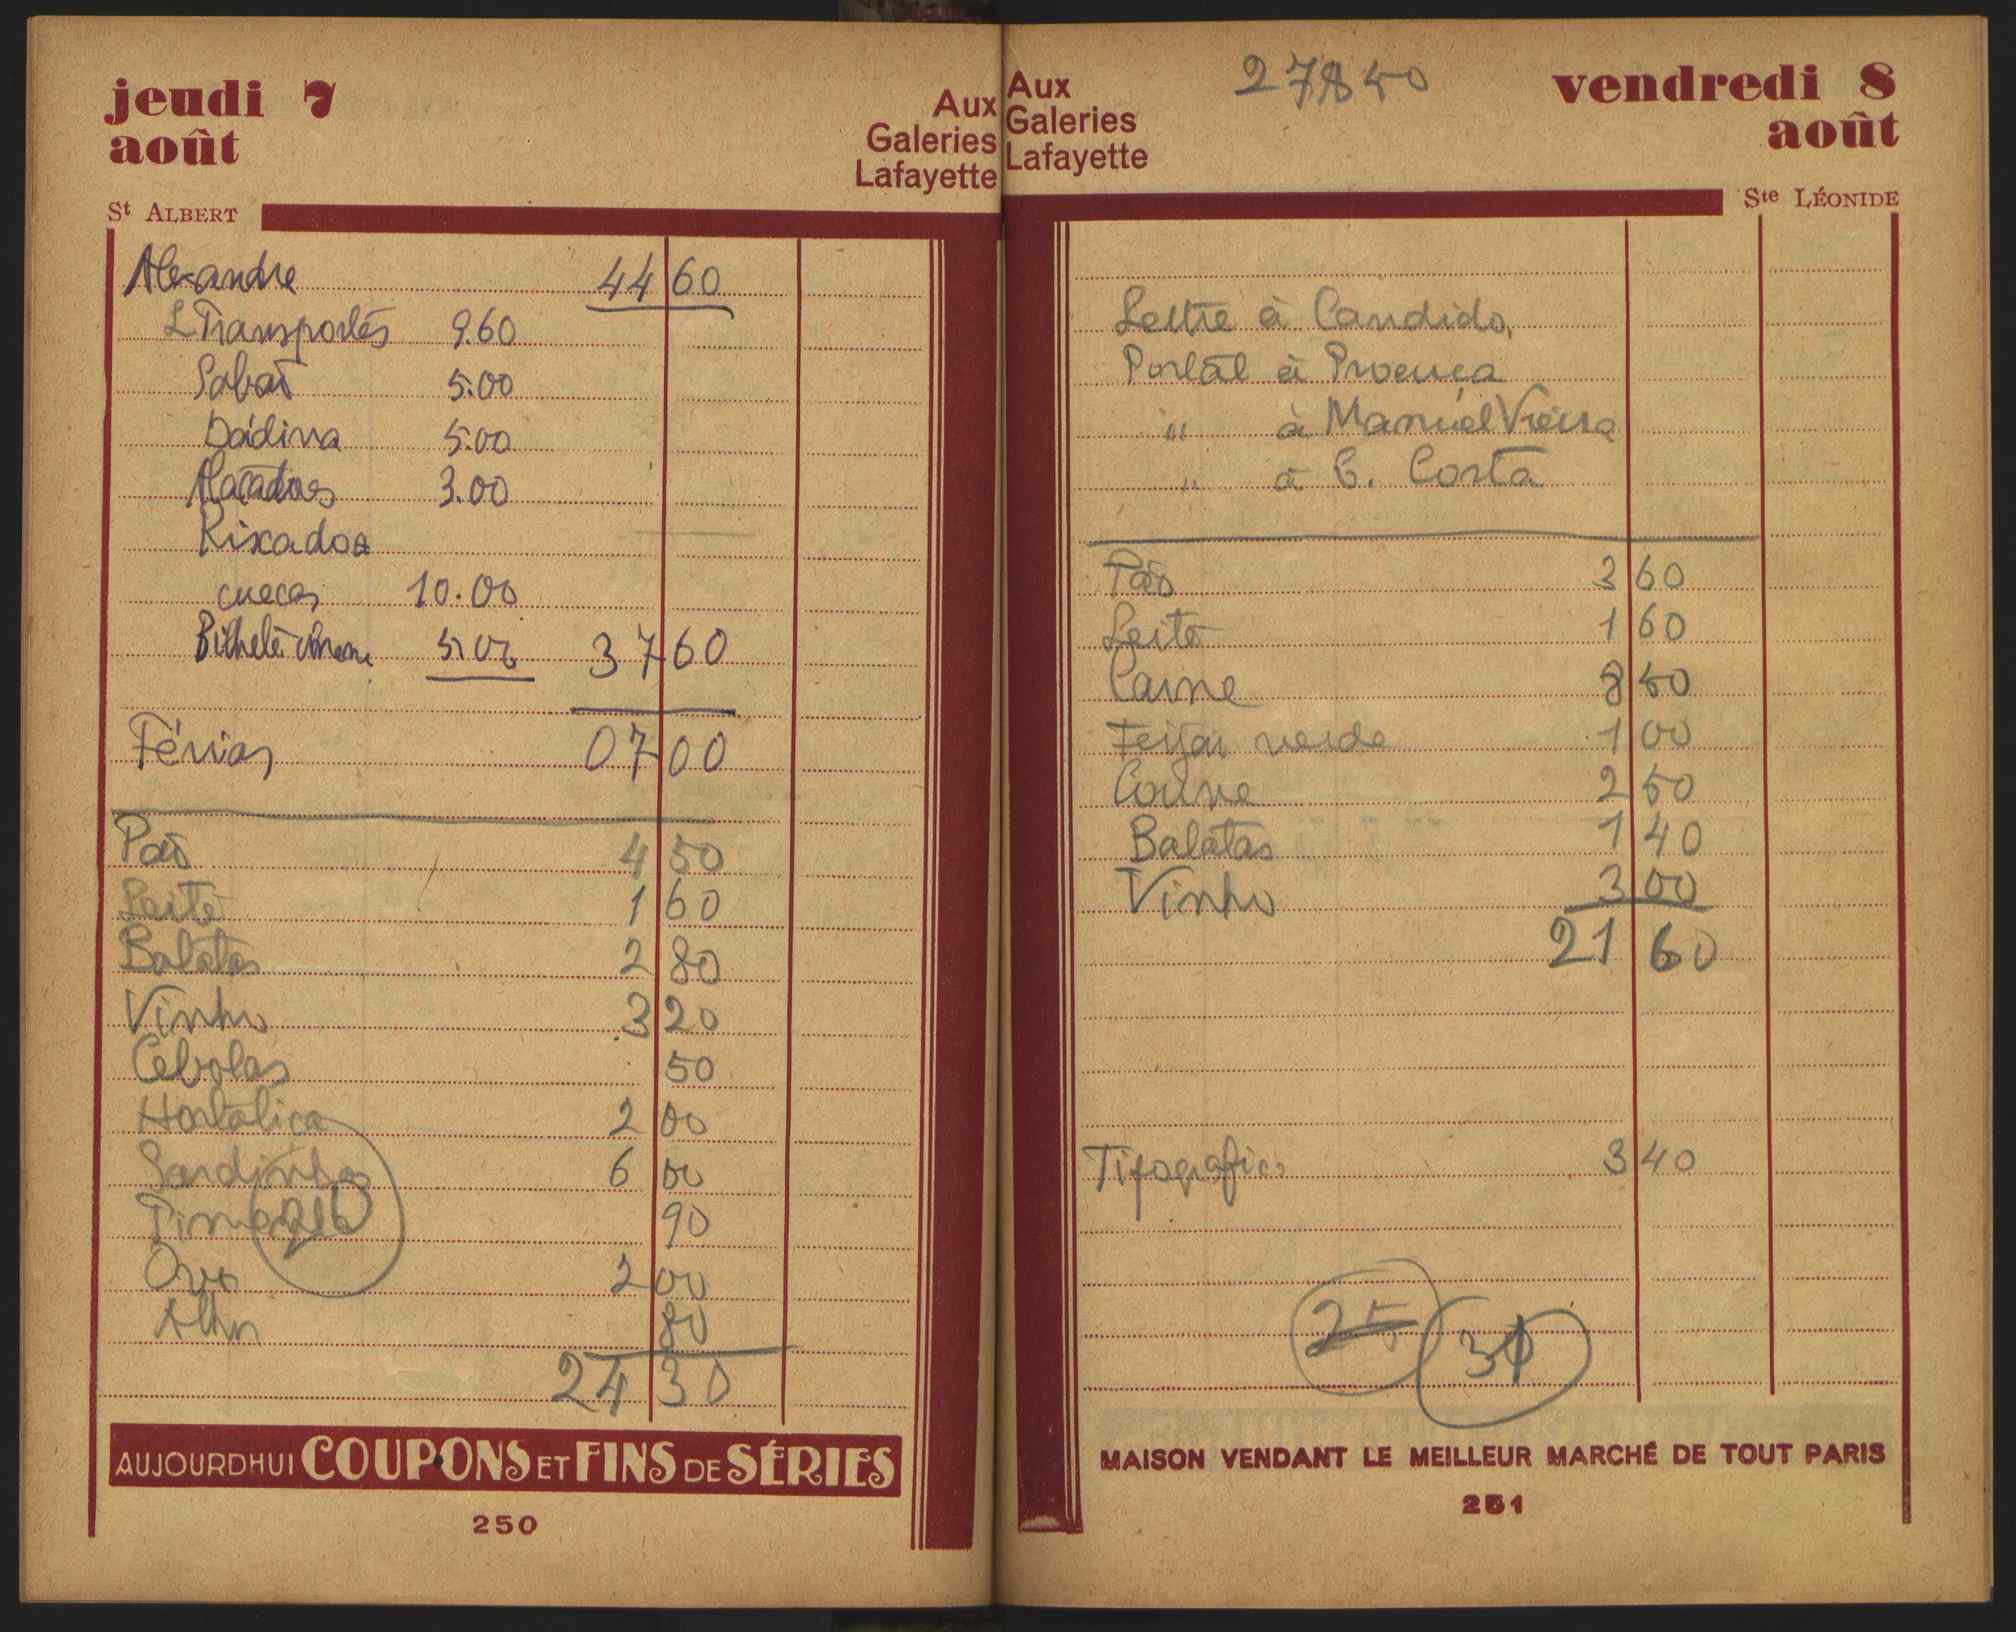 jeudi 7
août
Aux
Galeries
Lafayette
St ALBERT
Alexandre 44 60
Transportes 9.60
Sabão 5.00
Dádiva 5.00
3.00
Riscados
cuecas 10.00
Bilhete 5.00 37 60
Férias 07 00
Pão 4 50
Leite 1 60
Batatas 2 80
Vinho 3 20
Cebolas 50
Hortaliça 2 00
Sardinhas 6 00
Pimenta 90
20
Ovos 2 00
Alhos 80
24 30
AUJOURDHUI COUPONS ET FINS DE SÉRIES
250
Aux
Galeries
Lafayette
27850
vendredi 8
août
Ste LÉONIDE
Lettre à Candido,
Postal à Proença
" à Manuel Vieira
" a C. Costa
Pão 3 60
Leite 1 60
Carne 8 50
Feijão verde 1 00
Couve 2 50
Batatas 1 40
Vinho 3 00
21 60
Tipografico 3 40
25
31
MAISON VENDANT LE MEILLEUR MARCHÉ DE TOUT PARIS
251